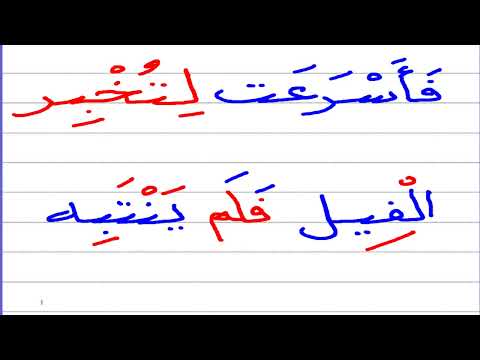 فَأَسْرَعَت لِتُخْبِر
الْفِيل فَلَم يَنْتَبِه